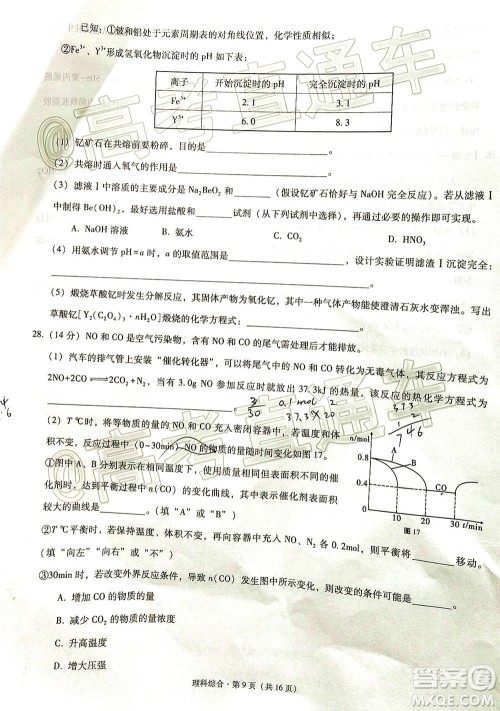 已知：①铍和铝处于元素周期表的对角线位置，化学性质相似。
②Fe³⁺、Y³⁺形成氢氧化物沉淀时的 pH 如下表：
离子 开始沉淀时的 pH 完全沉淀时的 pH
Fe³⁺ 2. 1 3. 1
Y³⁺ 6. 0 8. 3
（1）钇矿石在共熔前要粉碎，目的是
（2）共熔时通入氧气的作用是
（3）滤液Ⅰ中溶质的主要成分是 Na₂BeO₂ 和（假设钇矿石恰好与 NaOH 完全反应）。若从滤液Ⅰ
中制得 Be(OH)₂，最好选用盐酸和试剂（从下列试剂中选择），再通过必要的操作即可实现。
A. NaOH 溶液 B. 氨水 C. CO₂ D. HNO₃
（4）用氨水调节 pH=a 时，a 的取值范围是。设计实验证明滤渣Ⅰ沉淀完全：
。
（5）煅烧草酸钇时发生分解反应，其固体产物为氧化钇，一种气体产物能使澄清石灰水变浑浊。写出煅烧
草酸钇[Y₂(C₂O₄)₃·nH₂O]的化学方程式：。
28. （14 分）NO 和 CO 是空气污染物，含有 NO 和 CO 的尾气需处理后才能排放。
（1）汽车的排气管上安装“催化转化器”，其作用是使 NO 和 CO 转化为无毒气体，其反应方程式为
2NO+2CO⇌2CO₂+N₂。当有 3.0g NO 参与反应时，放出 37.3kJ 的热量，该反应的热化学方程式为
。
3/30 0.1mol 2
37.3×20
37.3
746
（2）T ℃时，将等物质的量的 NO 和 CO 充入密闭容器中，若温度和体
积不变，反应过程（0~30min）NO 的物质的量随时间变化如图 17。
①图中 a、b 分别表示在相同温度下，使用质量相同但表面积不同的催化
剂时，达到平衡过程中 n(NO) 的变化曲线，其中表示催化剂表面积
较大的曲线是。（填“a”或“b”）
n/mol
0.8
0.4
0.2
0 10 20 30 t/min
CO
图 17
②T ℃平衡时，保持温度、体积不变，再向容器中充入 NO、N₂ 各 0.2mol，则平衡将移动。
（填“向左”“向右”或“不”）
③30min 时，若改变外界反应条件，导致 n(CO) 发生图中所示的变化，则改变的条件可能是
A. 增加 CO 的物质的量
B. 减少 CO₂ 的物质的量浓度
C. 升高温度
D. 增大压强
理科综合·第 9 页（共 16 页）
@高考直通车
@高考直通车
答案圈